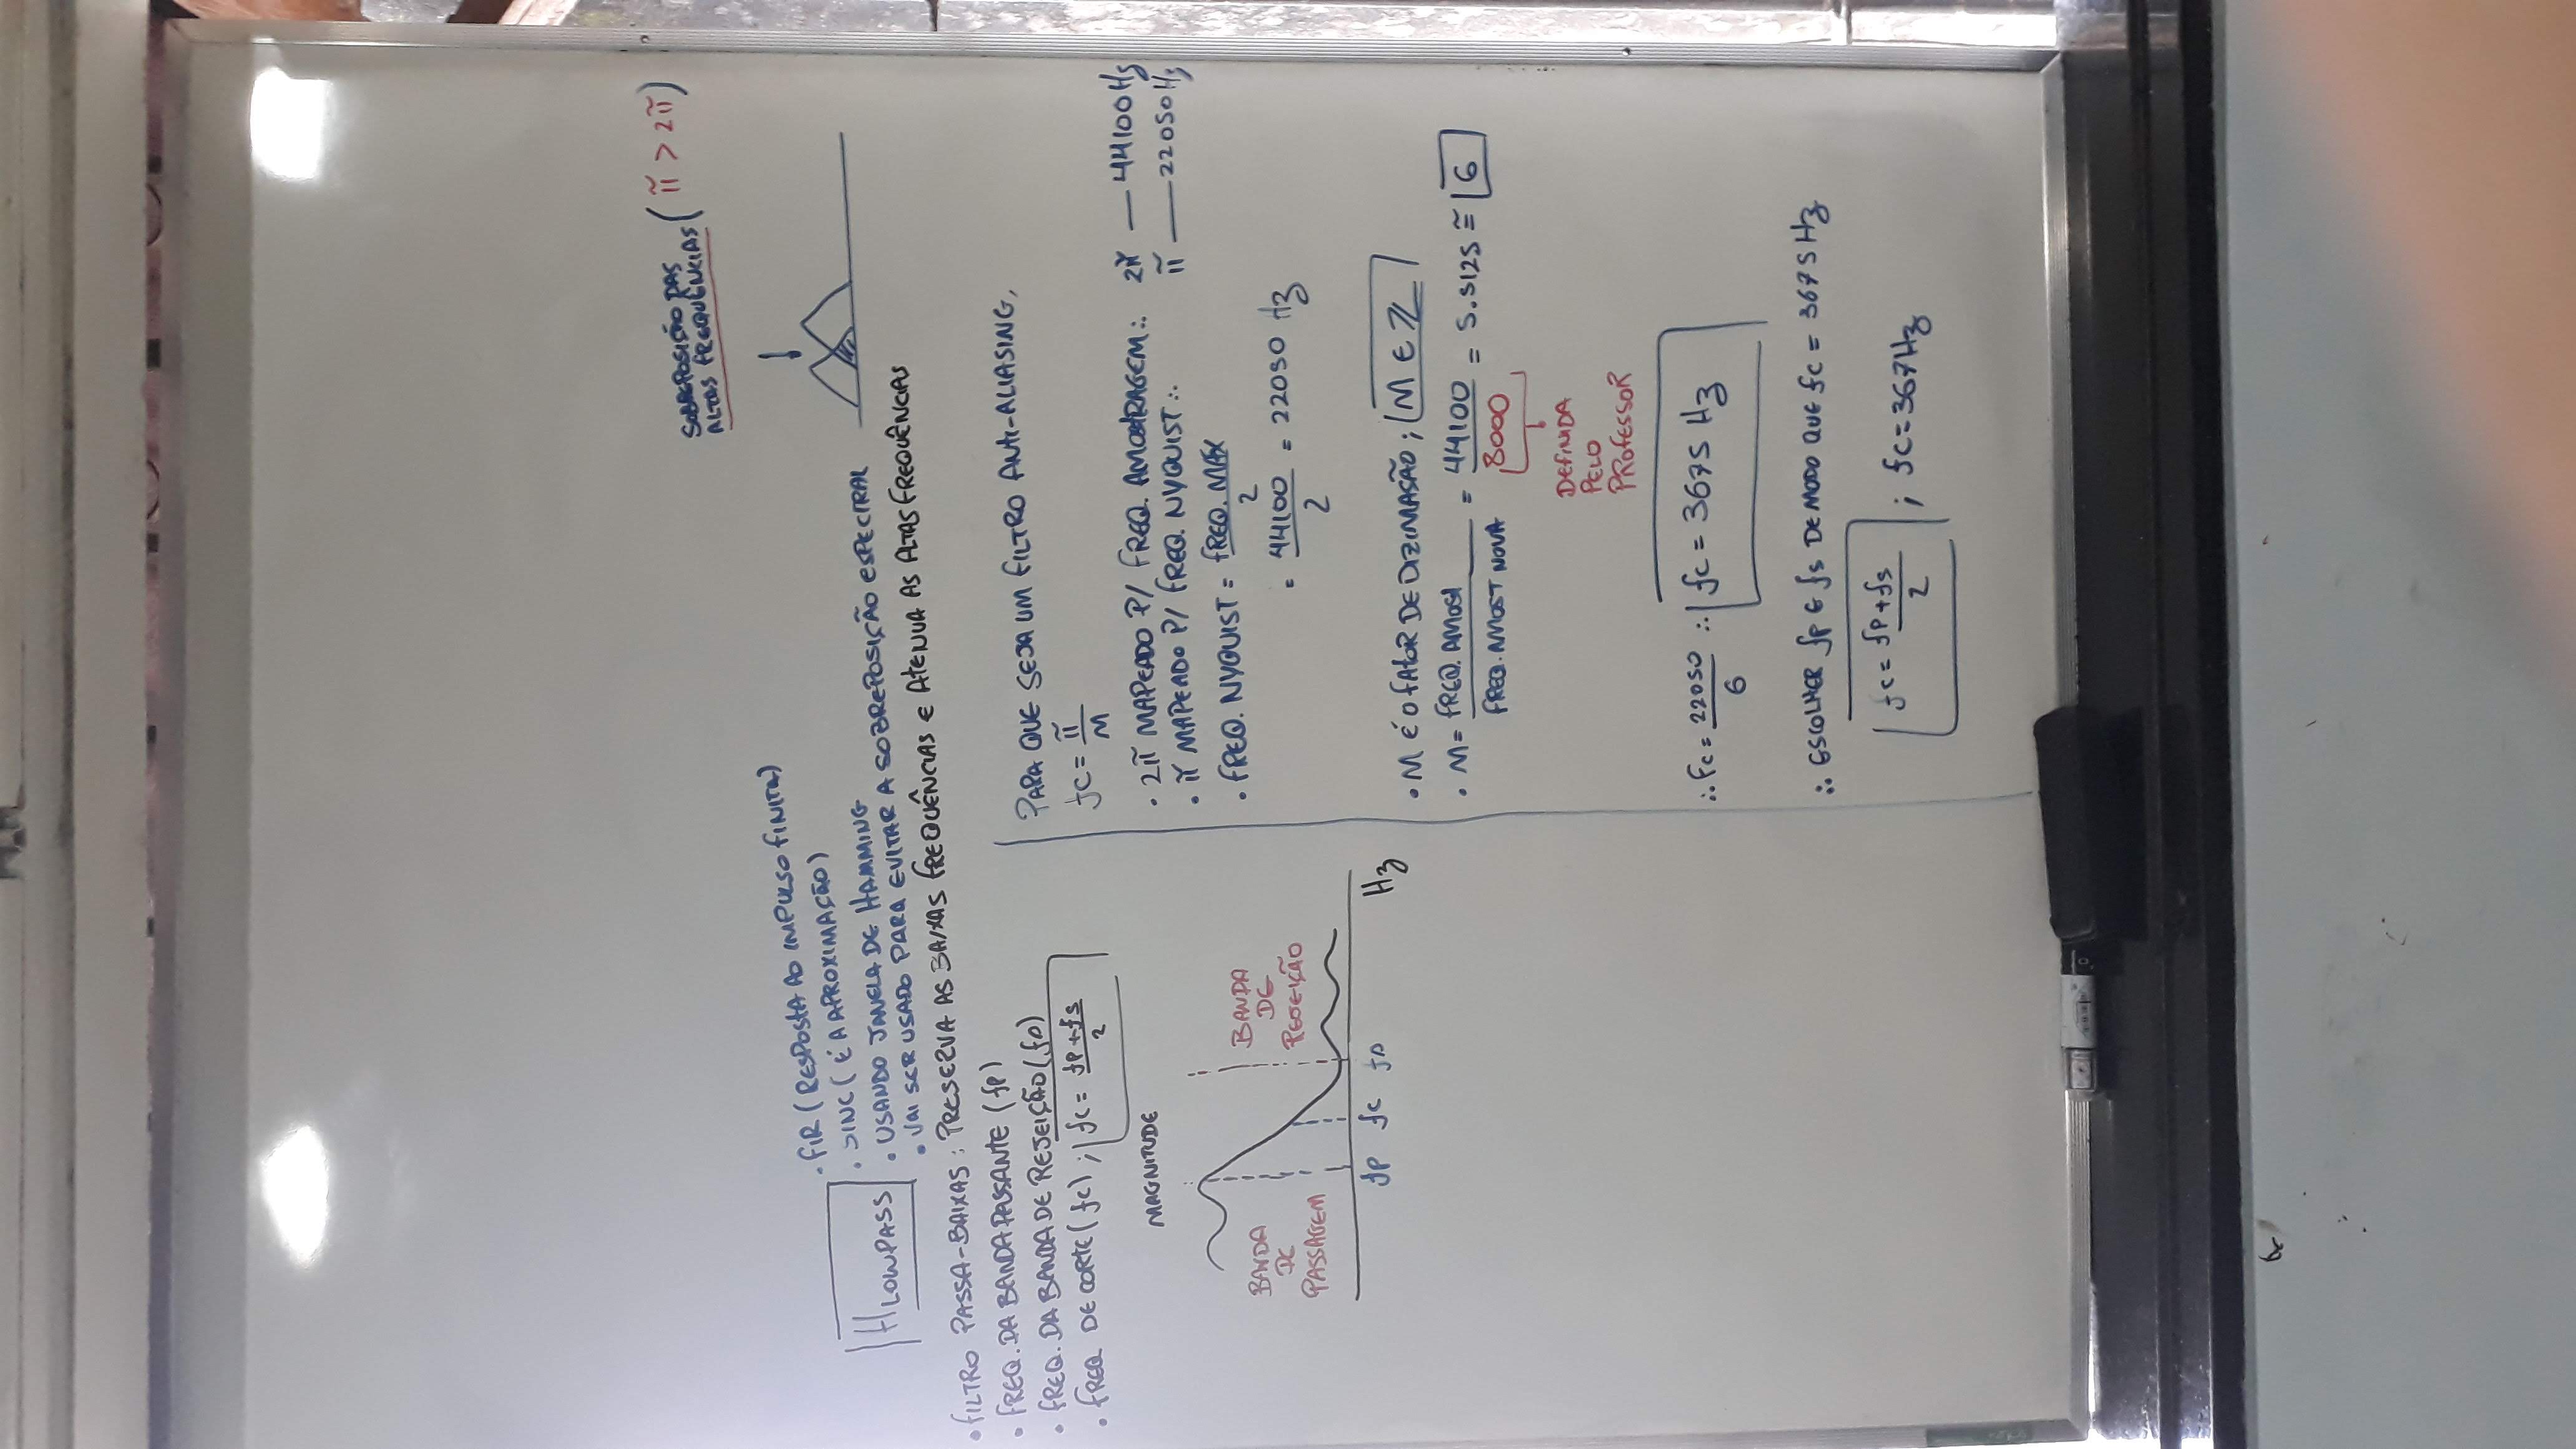 SOBREPOSIÇÃO DAS
ALTAS FREQUÊNCIAS (π > 2π)
HLOWPASS
• FIR (RESPOSTA AO IMPULSO FINITA)
• SINC (É A APROXIMAÇÃO)
• USANDO JANELA DE HAMMING
• VAI SER USADO PARA EVITAR A SOBREPOSIÇÃO ESPECTRAL
• FILTRO PASSA-BAIXAS: PRESERVA AS BAIXAS FREQUÊNCIAS E ATENUA AS ALTAS FREQUÊNCIAS
• FREQ. DA BANDA PASSANTE (fp)
• FREQ. DA BANDA DE REJEIÇÃO (fs)
• FREQ DE CORTE (fc) ; fc = fp+fs / 2
MAGNITUDE
BANDA
DE
PASSAGEM
BANDA
DE
REJEIÇÃO
fp fc fs Hz
PARA QUE SEJA UM FILTRO ANTI-ALIASING,
fc = π / M
• 2π MAPEADO P/ FREQ. AMOSTRAGEM ∴ 2π — 44100 Hz
• π MAPEADO P/ FREQ. NYQUIST ∴ π — 22050 Hz
• FREQ. NYQUIST = FREQ. MAX / 2
= 44100 / 2 = 22050 Hz
• M É O FATOR DE DIZIMASÃO ; M ∈ ℤ
• M = FREQ. AMOST / FREQ. AMOST NOVA = 44100 / 8000 = 5.5125 ≅ 6
DEFINIDA
PELO
PROFESSOR
∴ Fc = 22050 / 6 ∴ fc = 3675 Hz
∴ ESCOLHER fp E fs DE MODO QUE fc = 3675 Hz
fc = fp+fs / 2 ; fc = 367 Hz